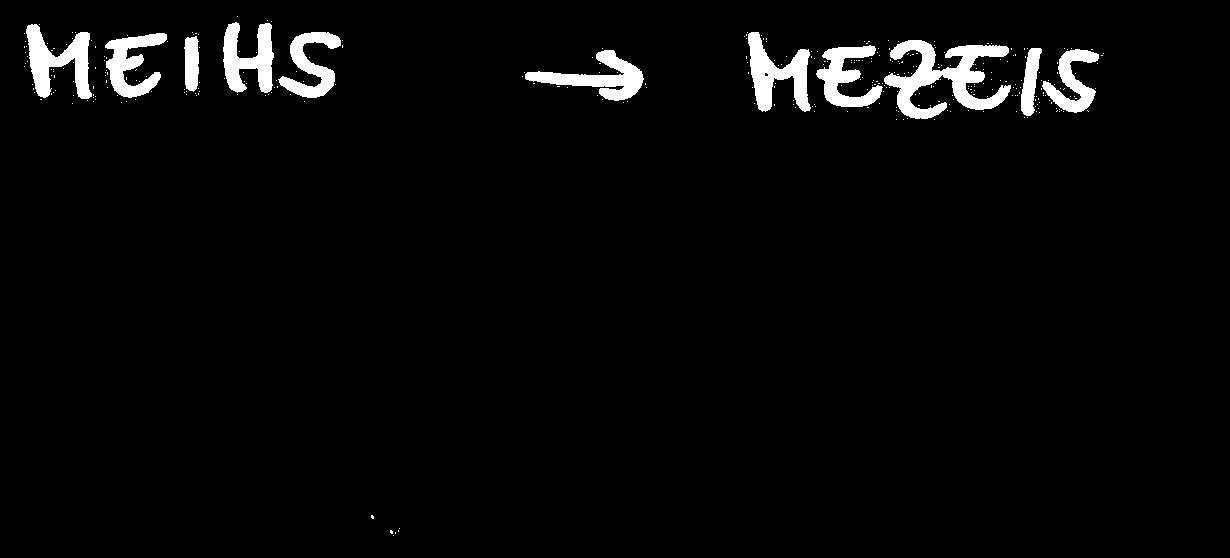 MEIHS → MEZEIS